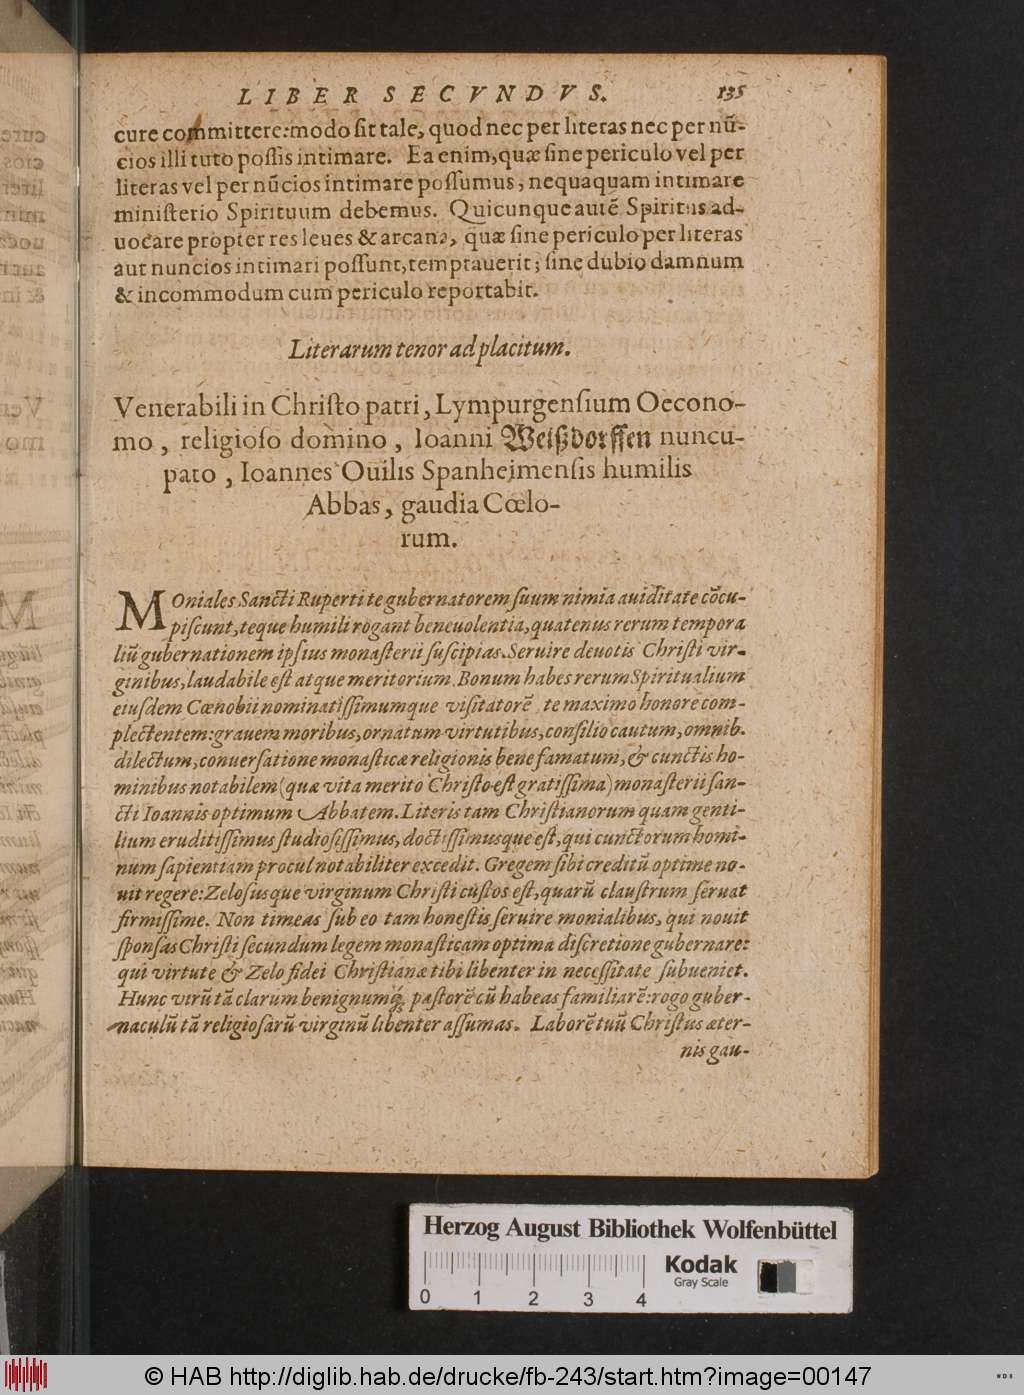 LIBER SECVNDVS. 135
cure committere: modo sit tale, quod nec per literas nec per nũ-
cios illi tuto possis intimare. Ea enim, quæ sine periculo vel per
literas vel per nũcios intimare possumus, nequaquam intimare
ministerio Spirituum debemus. Quicunque autẽ Spiritus ad-
uocare propter res leues & arcana, quæ sine periculo per literas
aut nuncios intimari possunt, temptauerit; sine dubio damnum
& incommodum cum periculo reportabit.
Literarum tenor ad placitum.
Venerabili in Christo patri, Lympurgensium Oecono-
mo, religioso domino, Ioanni Weißdorffen nuncu-
pato, Ioannes Ouilis Spanheimensis humilis
Abbas, gaudia Cœlo-
rum.
MOniales Sancti Ruperti te gubernatorem suum nimia auiditate cõcu-
piscunt, teque humili rogant beneuolentia, quatenus rerum tempora
liũ gubernationem ipsius monasterii suscipias. Seruire deuotis Christi vir-
ginibus, laudabile est atque meritorium. Bonum habes rerum Spiritualium
eiusdem Cœnobii nominatissimumque visitatorẽ, te maximo honore com-
plectentem: grauem moribus, ornatum virtutibus, consilio cautum, omnib.
dilectum, conuersatione monasticæ religionis bene famatum, & cunctis ho-
minibus notabilem (quæ vita merito Christo est gratissima) monasterii san-
cti Ioannis optimum Abbatem. Literis tam Christianorum quam genti-
lium eruditissimus studiosissimus, doctissimusque est, qui cunctorum homi-
num sapientiam procul notabiliter excedit. Gregem sibi creditũ optime no-
uit regere: Zelosusque virginum Christi custos est, quarũ claustrum seruat
firmissime. Non timeas sub eo tam honestis seruire monialibus, qui nouit
sponsas Christi secundum legem monasticam optima discretione gubernare:
qui virtute & Zelo fidei Christianæ tibi libenter in necessitate subueniet.
Hunc virũ tã clarum benignumq́; pastorẽ cũ habeas familiarẽ: rogo guber-
naculũ tã religiosarũ virginũ libenter assumas. Laborẽ tuũ Christus æter-
nis gau-
Herzog August Bibliothek Wolfenbüttel
Kodak
Gray Scale
0 1 2 3 4
© HAB http://diglib.hab.de/drucke/fb-243/start.htm?image=00147